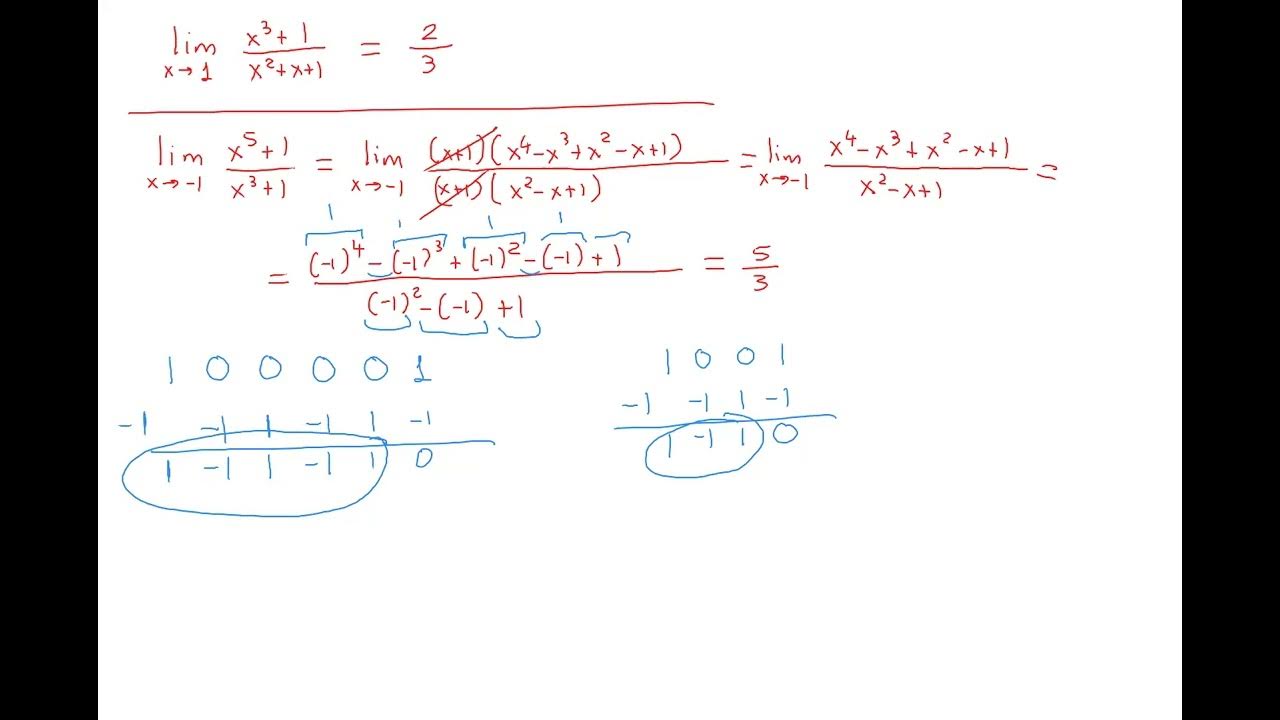 lim x→1 x³+1 / x²+x+1 = 2/3
lim x→-1 x⁵+1 / x³+1 = lim x→-1 (x+1)(x⁴-x³+x²-x+1) / (x+1)(x²-x+1) = lim x→-1 x⁴-x³+x²-x+1 / x²-x+1 =
1 1 1 1
= (-1)⁴-(-1)³+(-1)²-(-1)+1 / (-1)²-(-1)+1 = 5/3
1 0 0 0 0 1
-1 -1 1 -1 1 -1
1 -1 1 -1 1 0
1 0 0 1
-1 -1 1 -1
1 -1 1 0